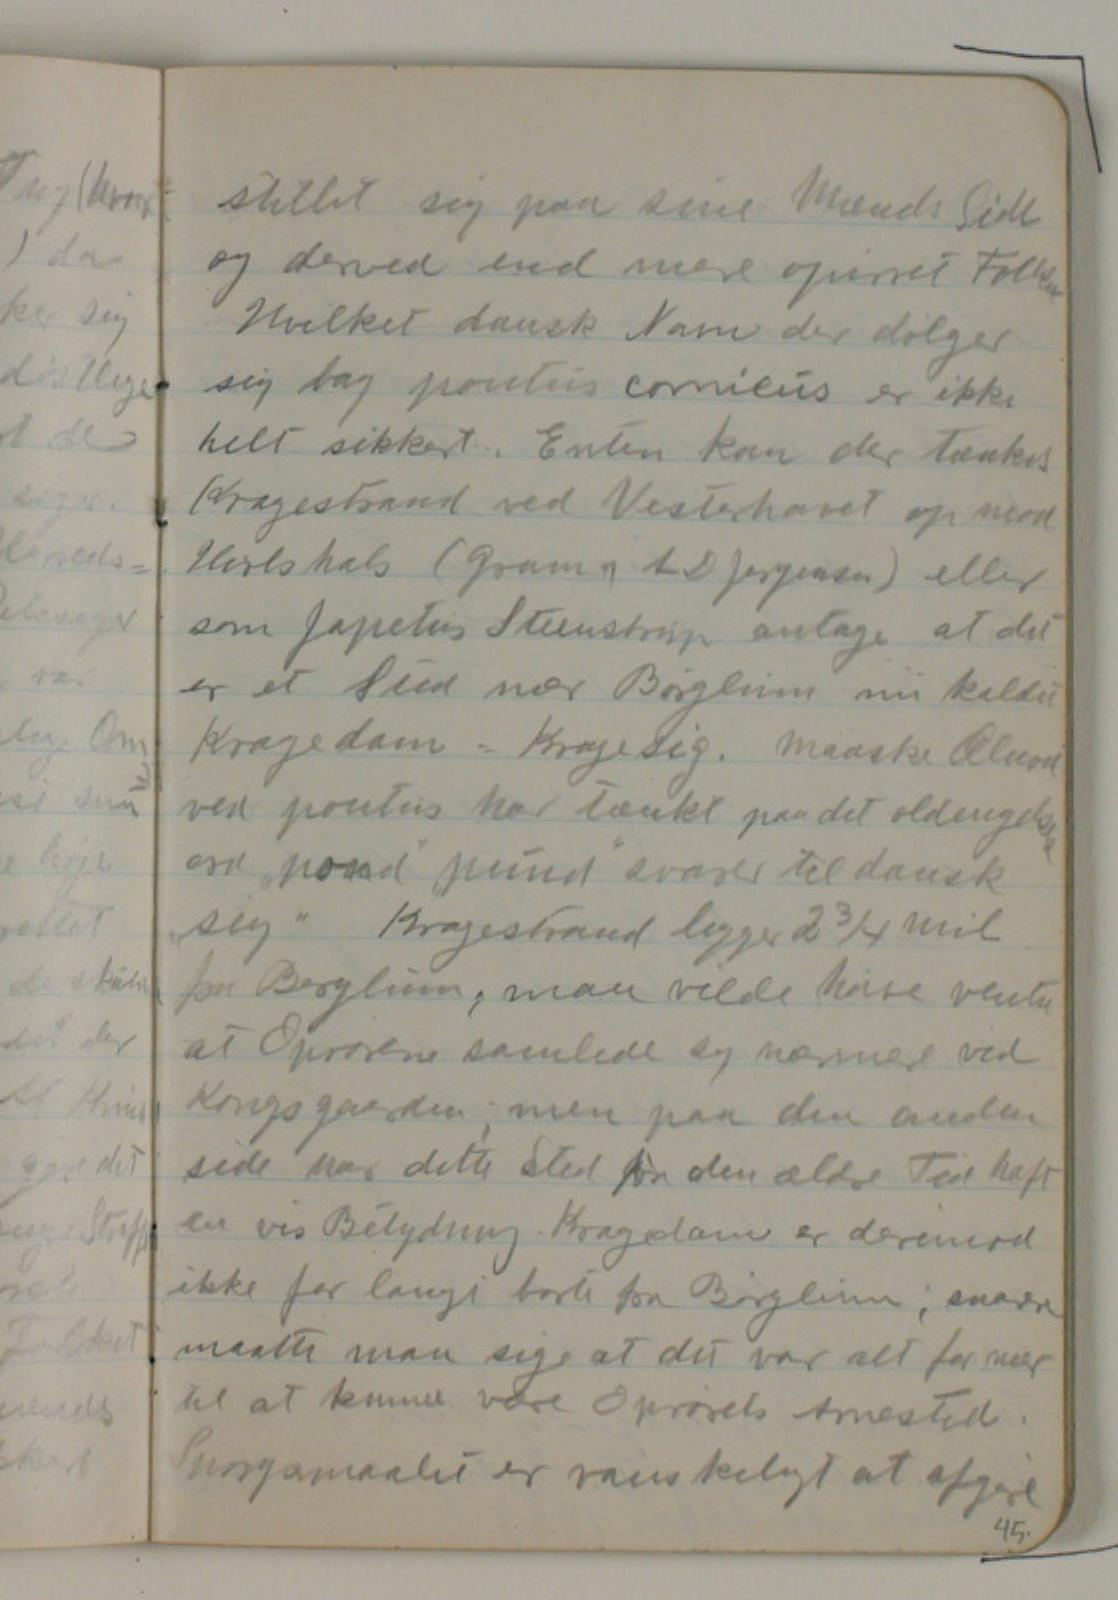 stillet sig paa sine Mænds Side
og derved end mere opirret Folket
Hvilket dansk Navn der dølger
sig bag pontus cornicus er ikke
helt sikkert. Enten kan der tænkes
Kragestrand ved Vesterhavet op mod
Hirtshals (Gram A D Jørgensen) eller
som Japetus Steenstrup antage at det
er et Sted nær Børglum nu kaldet
Kragedam = Kragesig. Maaske Ælnod
ved pontus har tænkt paa det oldengelske
ord „pond" „pund" svarer til dansk
„sig" Kragestrand ligger 2 3/4 Mil
fra Børglum, man vilde have ventet
at Oprørerne samlede sig nærmere ved
Kongsgaarden, men paa den anden
side har dette Sted fra den ældre Tid haft
en vis Betydning. Kragedam er derimod
ikke for langt borte fra Børglum; snarere
maatte man sige at det var alt for nær
til at kunne være Oprørets Arnested.
Spørgsmaalet er vanskeligt at afgøre
45.
Ting (hvor
) da
ker sig
var
Om
høje
det der
gøre det
Straff
Folket